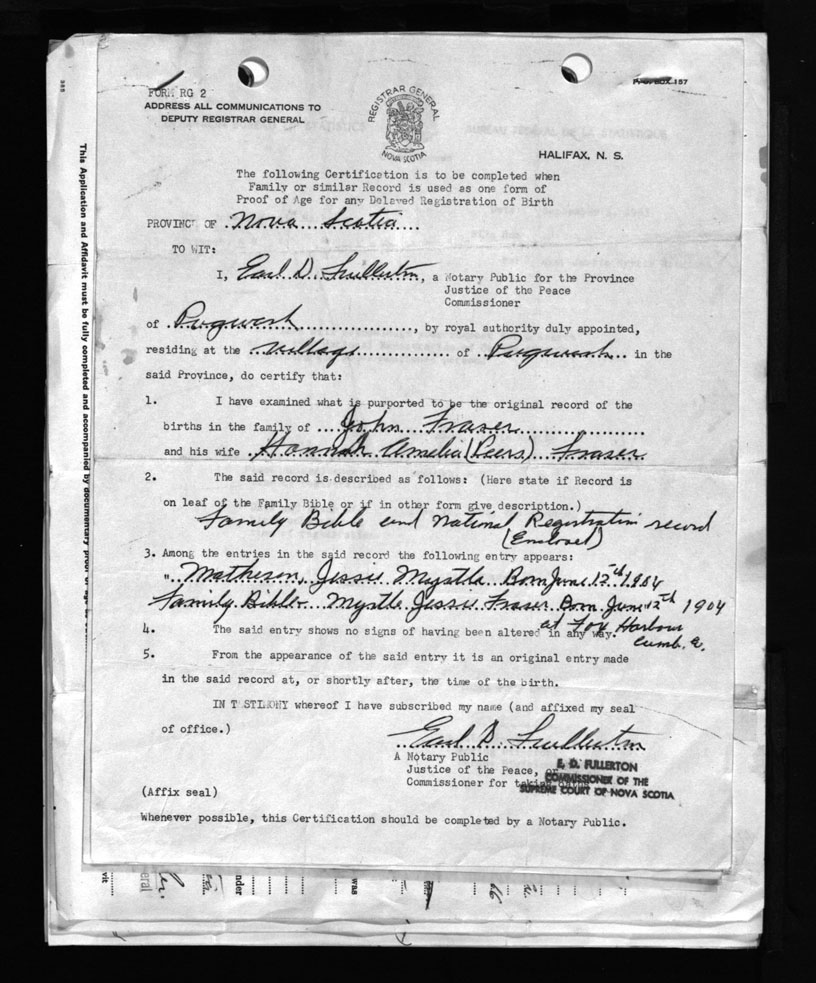 FORM RG 2
ADDRESS ALL COMMUNICATIONS TO
DEPUTY REGISTRAR GENERAL
REGISTRAR GENERAL
NOVA SCOTIA
P. O. BOX 157
HALIFAX, N. S.
The following Certification is to be completed when
Family or similar Record is used as one form of
Proof of Age for any Delayed Registration of Birth
PROVINCE OF Nova Scotia
TO WIT:
I, Earl D. Fullerton, a Notary Public for the Province
Justice of the Peace
Commissioner
of Pugwash, by royal authority duly appointed,
residing at the village of Pugwash in the
said Province, do certify that:
1. I have examined what is purported to be the original record of the
births in the family of John Fraser
and his wife Hannah Amelia (Peers) Fraser
2. The said record is described as follows: (Here state if Record is
on leaf of the Family Bible or if in other form give description.)
Family Bible and National Registration record
(Enclosed)
3. Among the entries in the said record the following entry appears:
" Matheson, Jessie Myrtle Born June 12th 1904
Family Bible Myrtle Jessie Fraser Born June 12th 1904
at Fox Harbour
Cumb. Co.
4. The said entry shows no signs of having been altered in any way.
5. From the appearance of the said entry it is an original entry made
in the said record at, or shortly after, the time of the birth.
IN TESTIMONY whereof I have subscribed my name (and affixed my seal
of office.)
Earl D. Fullerton
A Notary Public
Justice of the Peace, or
Commissioner for taking
E. D. FULLERTON
COMMISSIONER OF THE
SUPREME COURT OF NOVA SCOTIA
(Affix seal)
Whenever possible, this Certification should be completed by a Notary Public.
This Application and Affidavit must be fully completed and accompanied by documentary proof of age
BUREAU FEDERAL DE LA STATISTIQUE
vit
eral
nder
was
66